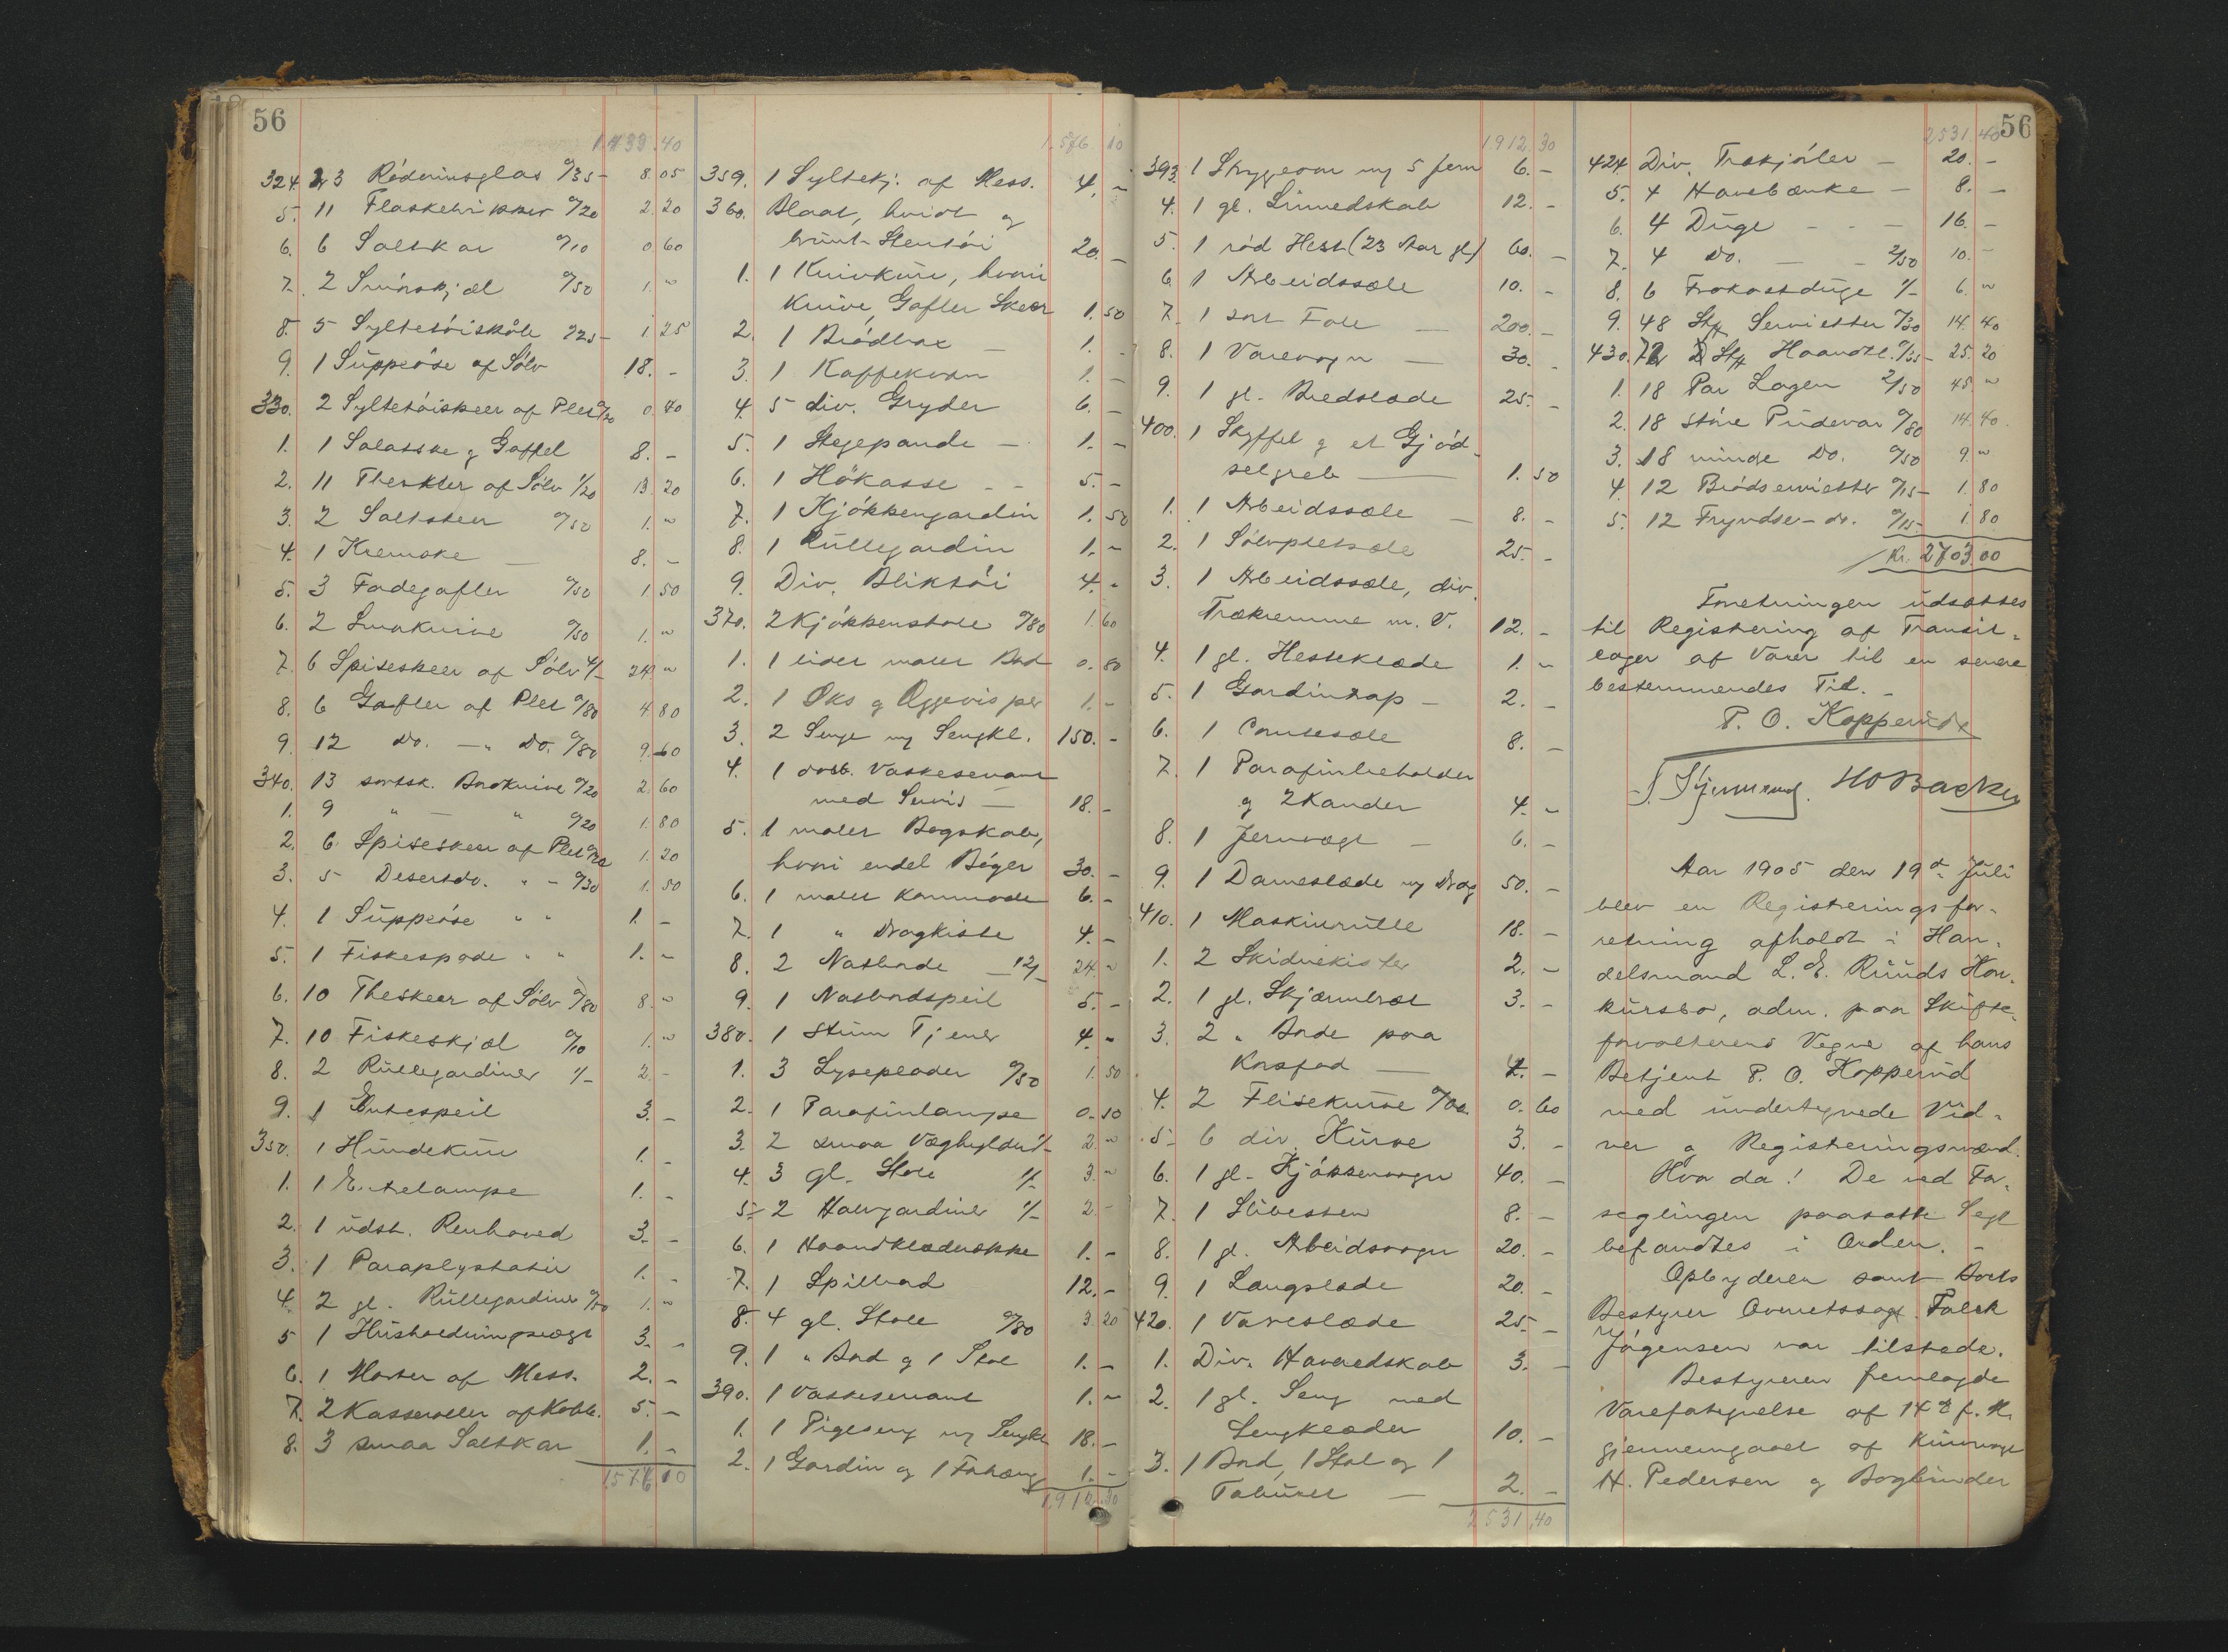 56
1433.40
324. 23 Rödvinsglas 0/35 8.05
5. 11 Flaskebrikker 0/20 2.20
6. 6 Saltkar 0/10 0.60
7. 2 Smörskjæl 0/50 1.
8. 5 Syltetöiskåle 0/25 1.25
9. 1 Suppeöse af Sölv 18. -
330. 2 Syltetöiskeer af Plet 0/20 0.40
1. 1 Salatske og Gaffel 8. -
2. 11 Theskeer af Sölv 1/20 13.20
3. 2 Saltskeer 0/50 1.
4. 1 Kremske 8. -
5. 3 Fadegafler 0/50 1.50
6. 2 Smørknive 0/50 1.
7. 6 Spiseskeer af Sölv 4/- 24.
8. 6 Gafler af Plet 0/80 4.80
9. 12 do. - " - do. 0/80 9.60
340. 13 sortsk. Bordknive 0/20 2.60
1. 9 " - " 0/20 1.80
2. 6 Spiseskeer af Plet 0/20 1.20
3. 5 Desertdo. " - 0/30 1.50
4. 1 Suppeöse " " 1. -
5. 1 Fiskespade " " 1. -
6. 10 Theskeer af Sölv 0/80 8.
7. 10 Fiskeskjæl 0/10 1.
8. 2 Rullegardiner 1/- 2. -
9. 1 Entespeil 3. -
350. 1 Hundekurv 1. -
1. 1 Entrelampe 1. -
2. 1 udst. Renhoved 3. -
3. 1 Paraplystativ 1. -
4. 2 gl. Rullegardiner 0/50 1.
5 1 Husholdningsvægt 3. -
6. 1 Morter af Mess. 2. -
7. 2 Kasseroller af Kobb. 5. -
8. 3 smaa Saltkar 1. -
1576.10
1.576.10
359. 1 Syltekj. af Mess. 4. -
360. Blaat, hvidt og
brunt Stentöi 20. -
1. 1 Knivkurv, hvori
Knive, Gafler Skeer 1.50
2. 1 Brödbox - 1. -
3. 1 Kaffekværn 1. -
4. 5 div. Gryder 6. -
5. 1 Stegepande - 1. -
6. 1 Hökasse - - 5. -
7. 1 Kjökkengardin 1.50
8. 1 Rullegardin 1. -
9. Div. Bliktöi 4. -
370. 2 Kjökkenstole 0/80 1.60
1. 1 lidet malet Bord 0.80
2. 1 Öks og Æggevisper 1. -
3. 2 Senge og Sengkl. 150. -
4. 1 dobb. Vaskeservant
med Servis - 18. -
5. 1 malet Bogskab,
hvori endel Böger 30. -
6. 1 malet Kommode 6. -
7. 1 " Dragkiste 4. -
8. 2 Natborde - 12/- 24.
9. 1 Natbordspeil 5. -
380. 1 Stum Tjener 4. -
1. 3 Lyseplader 0/50 1.50
2. 1 Parafinlampe 0.10
3. 2 smaa Væghylder 1/- 2.
4. 3 gl. Stole 1/- 3.
5. 2 Halvgardiner 1/- 2. -
6. 1 Haandklædrække 1. -
7. 1 Spilbord 12. -
8. 4 gl. Stole 0/80 3.20
9. 1 " Bord og 1 Stol 1. -
390. 1 Vaskeservant 1. -
1. 1 Pigeseng og Sengkl. 18. -
2. 1 Gardin og 1 Forhæng 1. -
1,912.30
56
1912.30
393. 1 Strygeovn og 5 Jern 6. -
4. 1 gl. Linnedskab 12. -
5. 1 röd Hest (23 Aar gl) 60. -
6. 1 Arbeidssæle 10. -
7. 1 sort Fole - 200. -
8. 1 Varevogn - 30. -
9. 1 gl. Bredslæde 25. -
400. 1 Skyffel og et Gjöd-
selgreb - 1.50
1. 1 Arbeidssæle - 8. -
2. 1 Sölvpletsæle 25. -
3. 1 Arbeidssæle, div.
Trækremme m. V. 12. -
4. 1 gl. Hesteklæde 1. -
5. 1 Gardintrap - 2. -
6. 1 Comtesæle 8. -
7. 1 Parafinbeholder
og 2 Kander 4. -
8. 1 Jernvægt - 6. -
9. 1 Dameslæde og Drag 50. -
410. 1 Maskinrulle 18. -
1. 2 Skidnekister 2. -
2. 1 gl. Skjærmbræt 3. -
3. 2 " Borde paa
Korsfod - 4. -
4. 2 Flisekurve 0/30. 0.60
5. 6 div. Kurve 3. -
6. 1 gl. Kjökkenvogn 40. -
7. 1 Slibesten 8. -
8. 1 gl. Arbeidsvogn 20. -
9. 1 Langslæde 20. -
420. 1 Vareslæde 25. -
1. Div. Haveredskab 3. -
2. 1 gl. Seng med
Sengklæder 10. -
3. 1 Bord, 1 Stol og 1
Taburet - 2. -
2531.40
2531.40
424. Div. Trekjöler - 20. -
5. 4 Havebænke - 8. -
6. 4 Duge - - - 16. -
7. 4 do. - - 2/50 10. -
8. 6 Frokostduge 1/- 6.
9. 48 Stk Servietter 0/30 14.40
430. 72 Stk Haandkl. 0/35 - 25.20
1. 18 Par Lagen 2/50 45.
2. 18 störe Pudevar 0/80 14.40
3. 18 mindre do. 0/50 9.
4. 12 Brödservietter 0/15 - 1.80
5. 12 Fryndse- do. 0/15 - 1.80
Kr. 2703.00
Forretningen udsættes
til Registrering af Transit-
lager af Varer til en senere
bestemmendes Tid. -
P. O. Kopperud
HOBacken
Aar 1905 den 19de Juli
blev en Registreringsfor-
retning afholdt i Han-
delsmand L. E. Ruuds Kon-
kursbo, adm. paa Skifte-
forvalterens Vegne af hans
Betjent P. O. Kopperud
med undertegnede Vid-
ner og Registreringsmænd.
Hvorda! De ved For-
seglingen paasatte Segl
befandtes i Orden. -
Opbyderen samt Boets
Bestyrer Overretssagf. Falck
Jögensen var tilstede.
Bestyreren fremlagde
Varefortegnelse af 14de f. M.
gjennemgaaet af Kjøbm.
H. Pedersen og Bogbinder